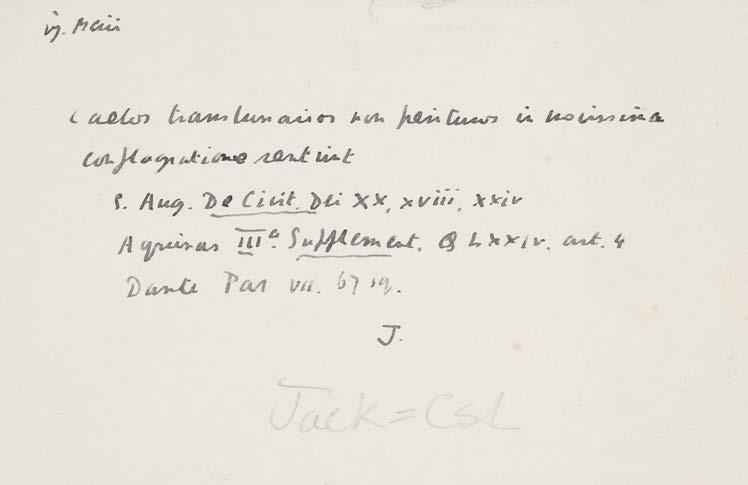 Maii
Caelos translunaires non perituros in novissima
conflagratione sentiunt
S. Aug. De Civit. Dei XX, xviii, xxiv
Aquinas IIIª. Supplement. Q LXXIV. art. 4
Dante Par VII. 67 sq.
J.
Jack = CSL